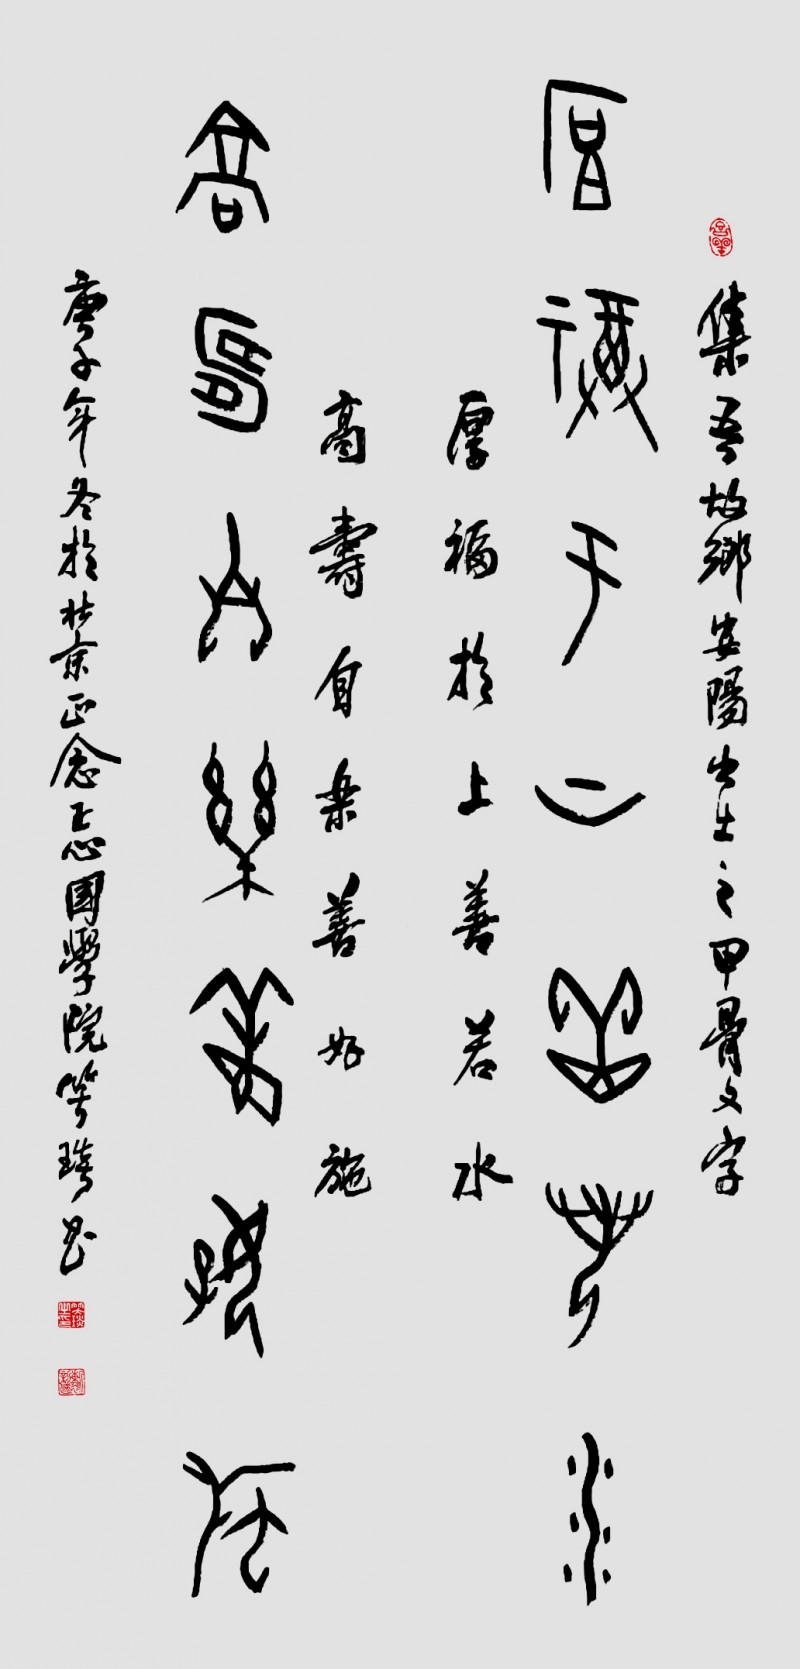 集吾故鄉安陽出土之甲骨文字
厚福于上善若水
厚福於上善若水
高壽自樂善好施
高壽自樂善好施
庚子年冬於北京正念正心國學院笑琰書